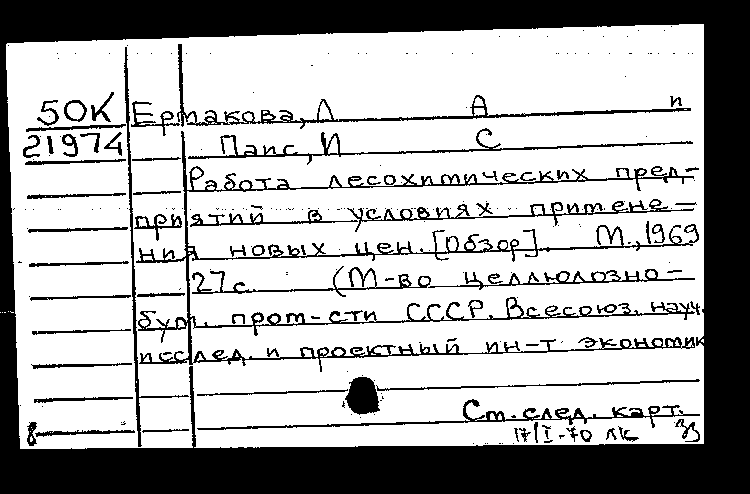 50К Ермакова, Л А и
21974 Папс, И С
Работа лесохимических пред-
приятий в условиях примене-
ния новых цен. [Обзор]. М., 1969
27 с. (М-во целлюлозно-
бум. пром-сти СССР. Всесоюз. науч.
исслед. и проектный ин-т экономик
См. след. карт.
8 17/I-70 лк